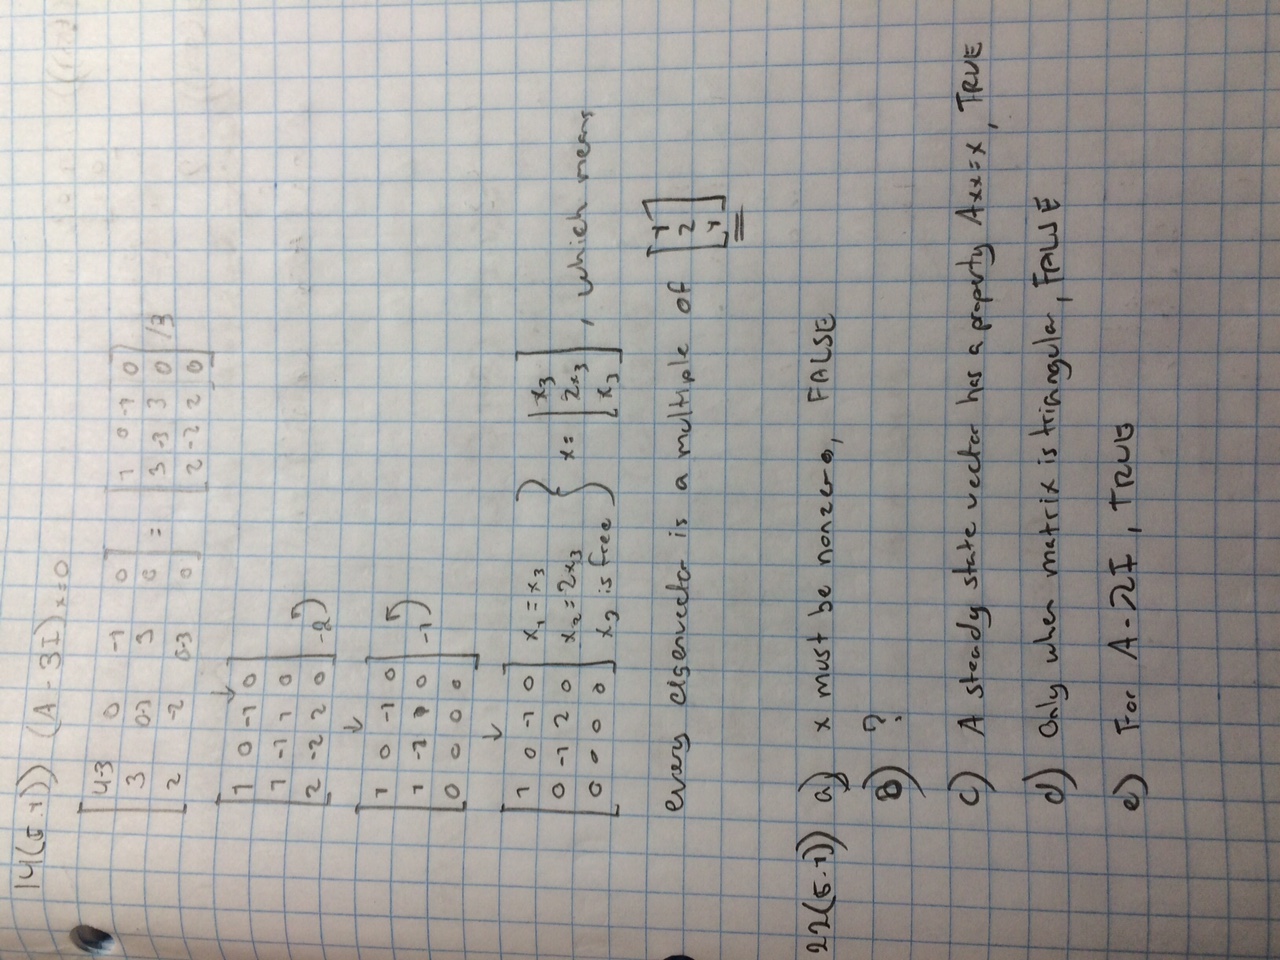 14(5.1)) (A - 3I)x=0
[4-3 0 -1 0] = [1 0 -1 0]
[3 0-3 3 0] [3 -3 3 0] /3
[2 -2 5-3 0] [2 -2 2 0]
↓
[1 0 -1 0]
[1 -1 1 0]
[2 -2 2 0] -2
↓
[1 0 -1 0]
[1 -1 1 0] -1
[0 0 0 0]
↓
[1 0 -1 0] x₁ = x₃
[0 -1 2 0] x₂ = 2x₃
[0 0 0 0] x₃ is free
} x = [x₃ 2x₃ x₃] , which means
every eigenvector is a multiple of [1 2 1]
22(5.1)) a) x must be nonzero, FALSE
B) ?
c) A steady state vector has a property Axx=x, TRUE
d) Only when matrix is triangular, FALSE
e) For A-λI, TRUE